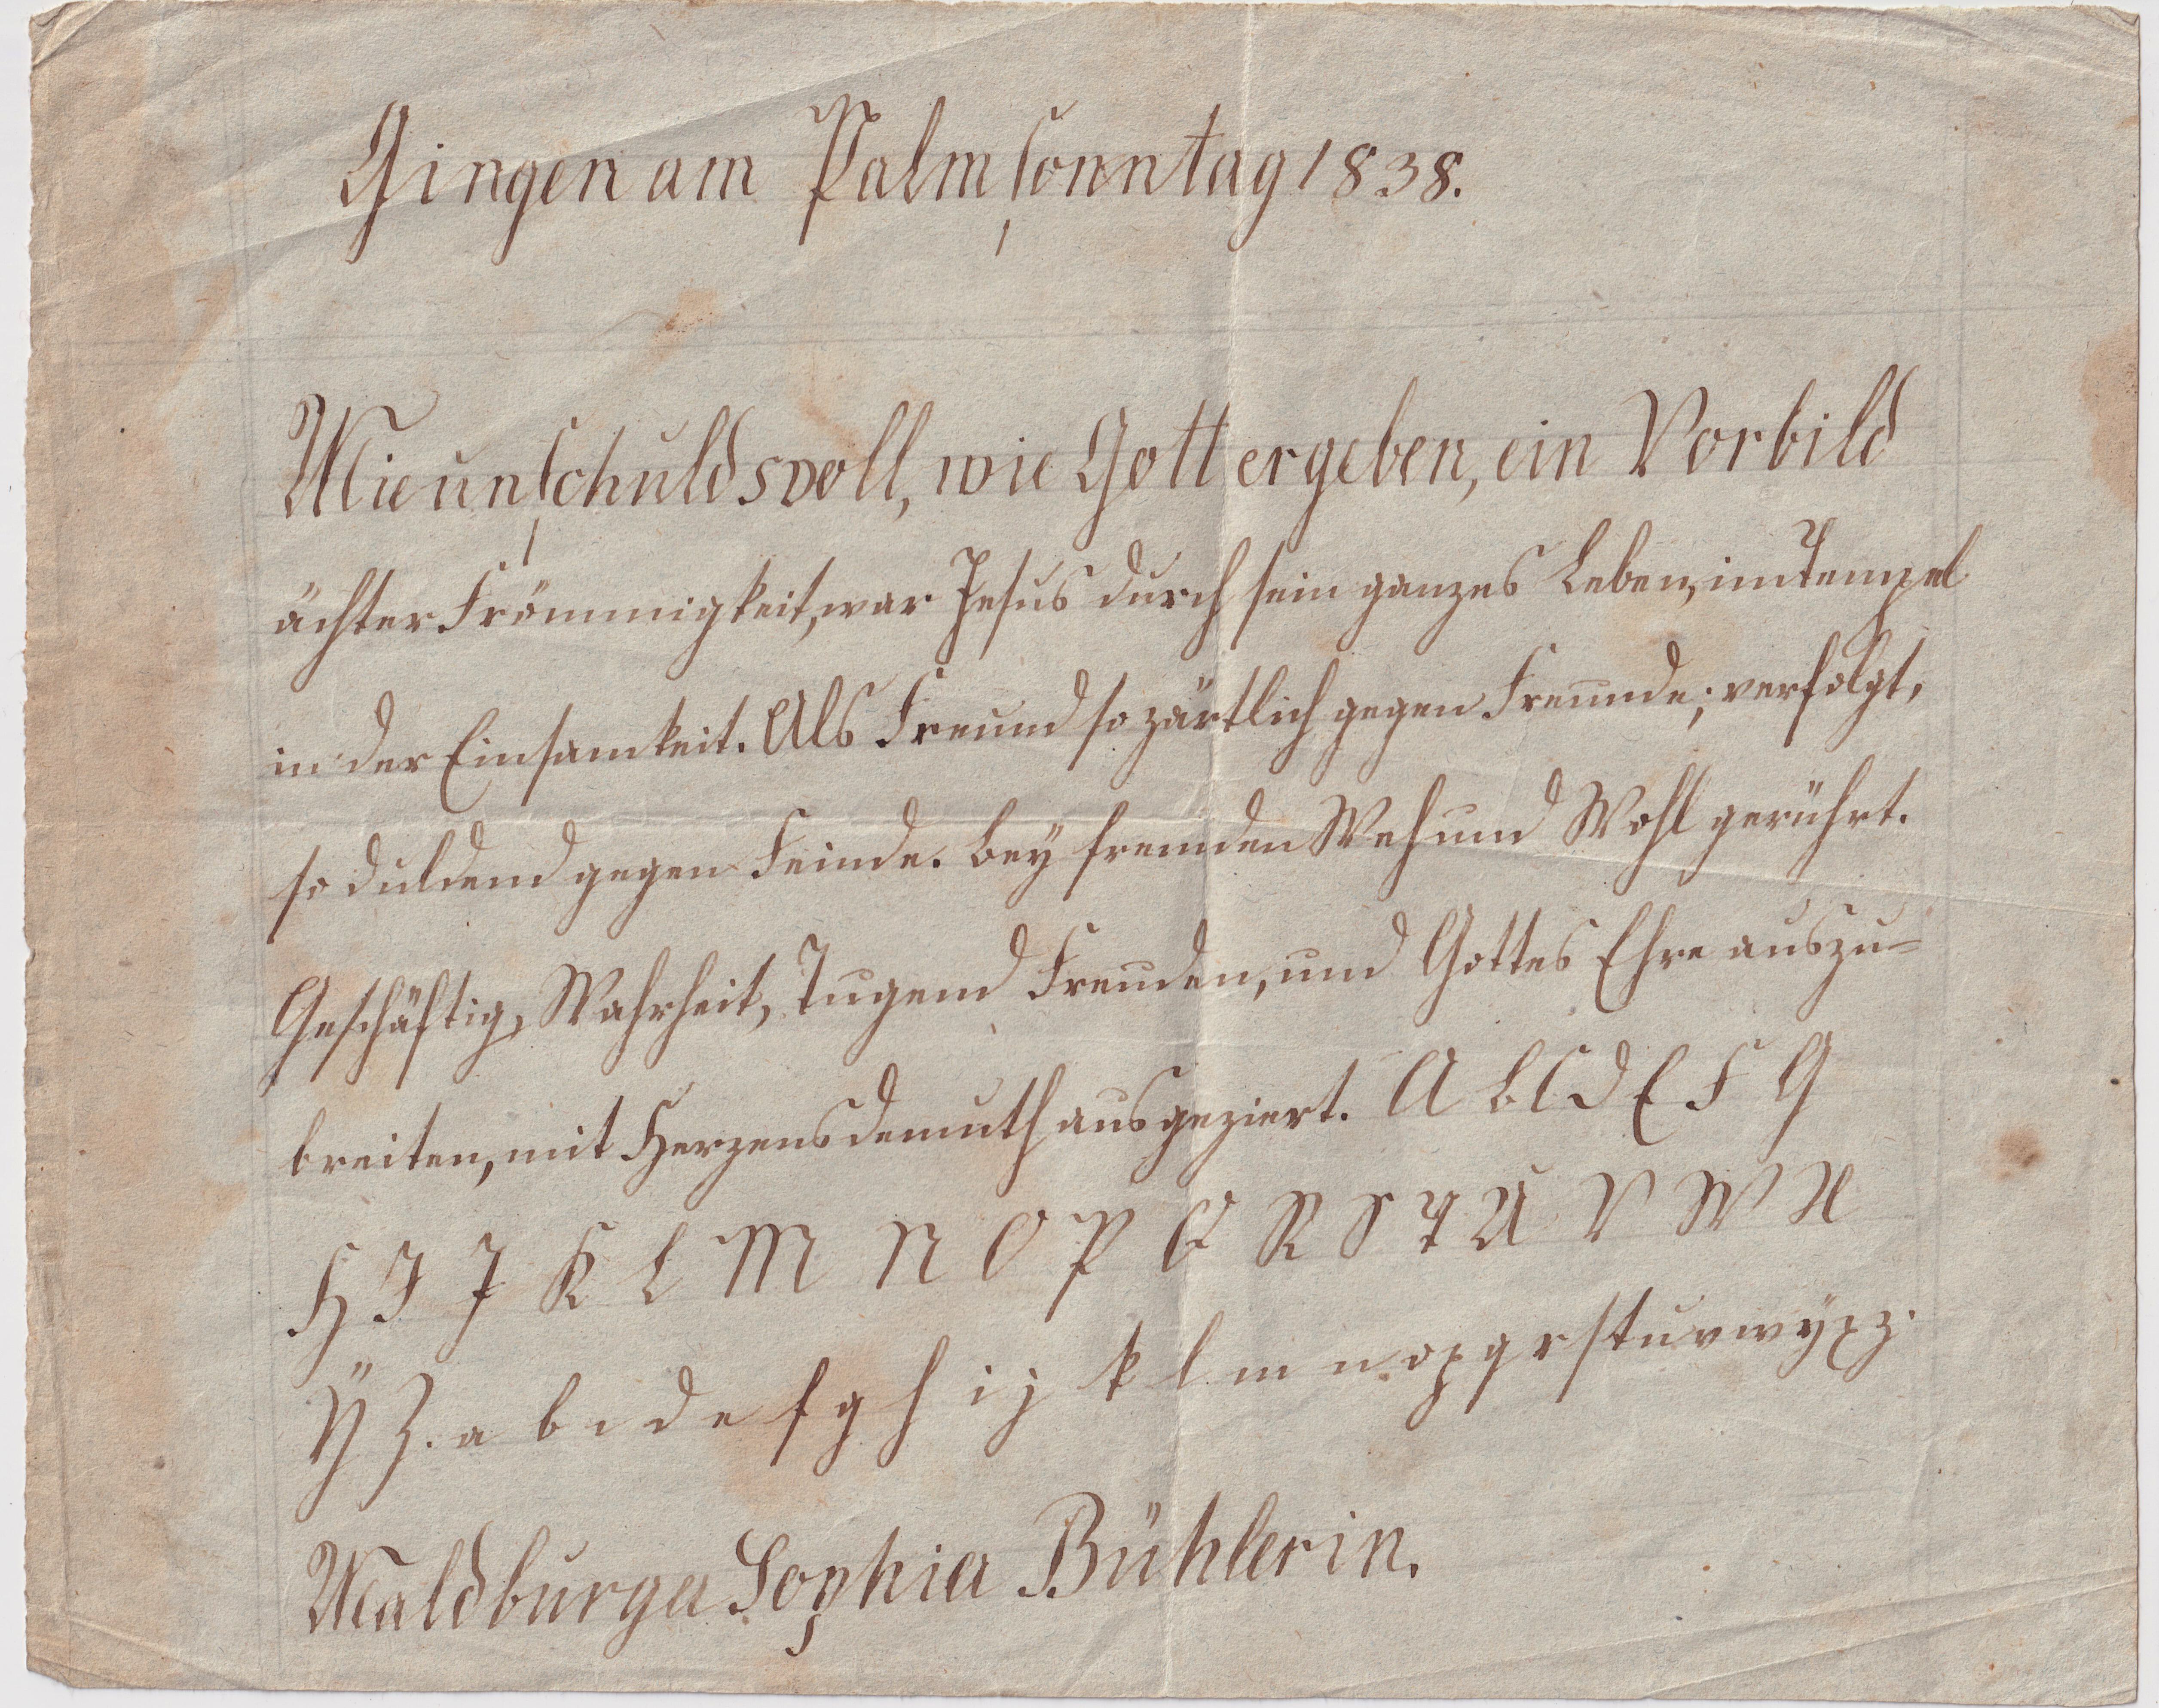 Gingen am Palmsonntag 1838.
Wie unschuldsvoll, wie Gott ergeben, ein Vorbild
ächter Frömmigkeit, war Jesus durch sein ganzes Leben, im Tempel
in der Einsamkeit. Als Freund so zärtlich gegen Freunde; verfolgt,
so duldend gegen Feinde. bey fremden Weh und Wohl gerührt.
Geschäftig, Wahrheit, Tugend Freuden, und Gottes Ehre auszu=
breiten, mit Herzensdemuth ausgeziert. A B C D E F G
H I J K L M N O P Q R S T U V W X
Ÿ Z. a b c d e f g h i j k l m n o p q r s t u v w ÿ x z.
Waldburga Sophia Bühlerin.